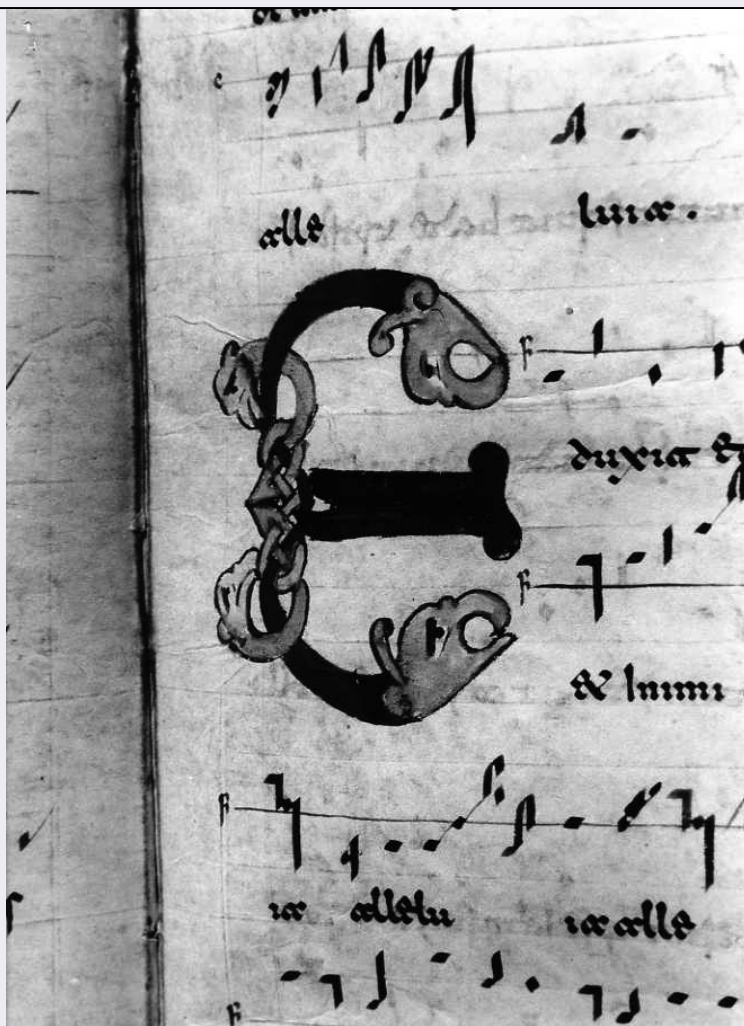 alle luia.
Eduxit eo
et inimi
ia allelu ia alle